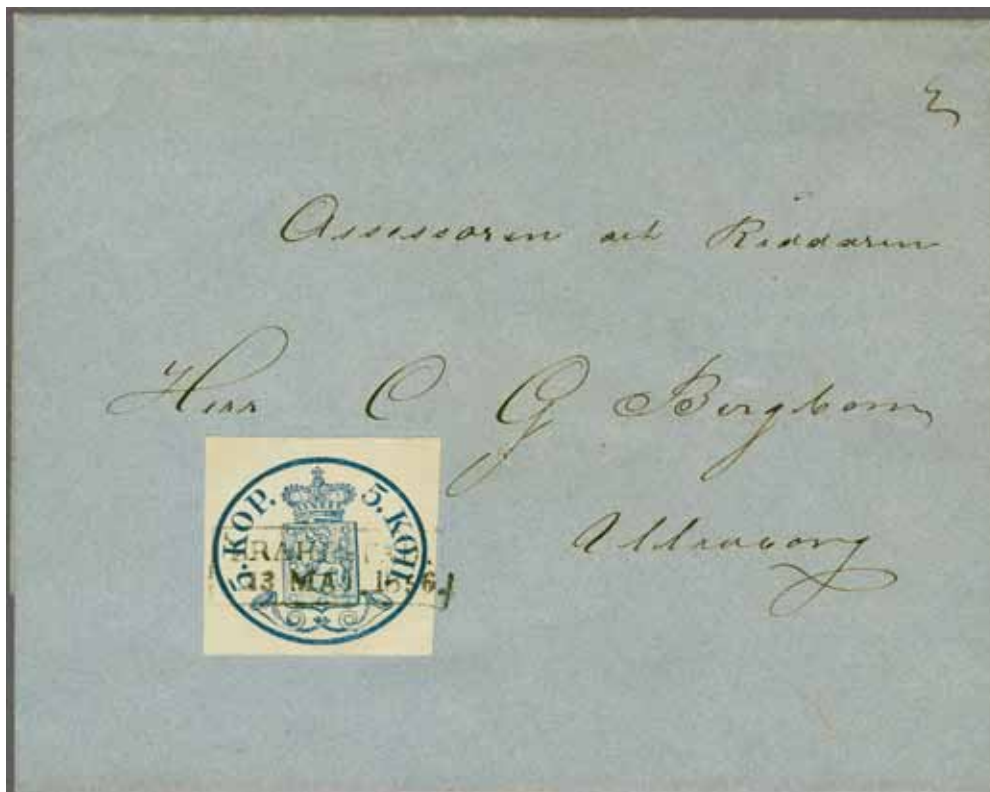 Assessoren och Riddaren
Herr C G Bergbom
Uleåborg
5. KOP. 5. KOП.
13 MAJ 1856.